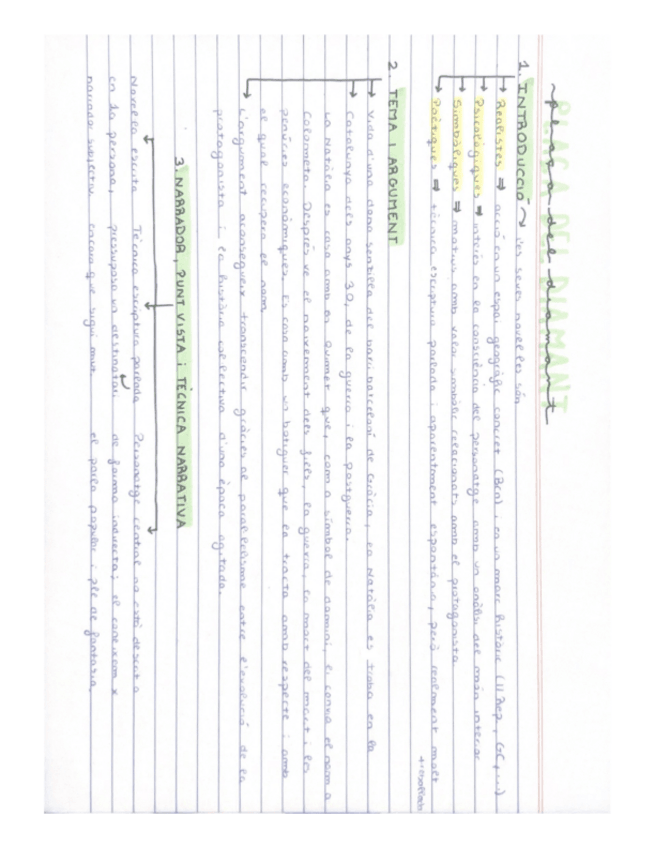 PLAÇA DEL DIAMANT
plaça del diamant
1. INTRODUCCIÓ → Les seves novel·les són
Realistes ➡ acció en un espai geogràfic concret (Bcn), en un marc històric (II Rep, GC, ...)
Psicològiques ➡ interès en la consciència del personatge amb un anàlisi del món interior
Simbòliques ➡ motius amb valor simbòlic relacionats amb el protagonista
Poètiques ➡ tècnica escriptura parlada i aparentment espontània, però realment molt
2. TEMA I ARGUMENT
Vida d'una dona senzilla del barri barceloní de Gràcia, la Natàlia es troba en la
Catalunya dels anys 30, de la guerra i la postguerra.
La Natàlia es casa amb en Quimet que, com a símbol de domini, li canvia el nom a
Colometa. Després ve el naixement dels fills, la guerra, la mort del marit i les
econòmiques. Es casa amb un botiguer que la tracta amb respecte i amb
el qual recupera el nom.
L'argument aconsegueix transcendir gràcies al paral·lelisme entre l'evolució de la
protagonista i la història col·lectiva d'una època agitada.
3. NARRADOR, PUNT VISTA i TÈCNICA NARRATIVA
Novel·la escrita Tècnica escriptura parlada Personatge central no està descrit a
en 1a persona, pressuposa un destinatari de forma indirecta; el coneixem x
narrador subjectiu encara que sigui mut. el parla popular i ple de fantasia.